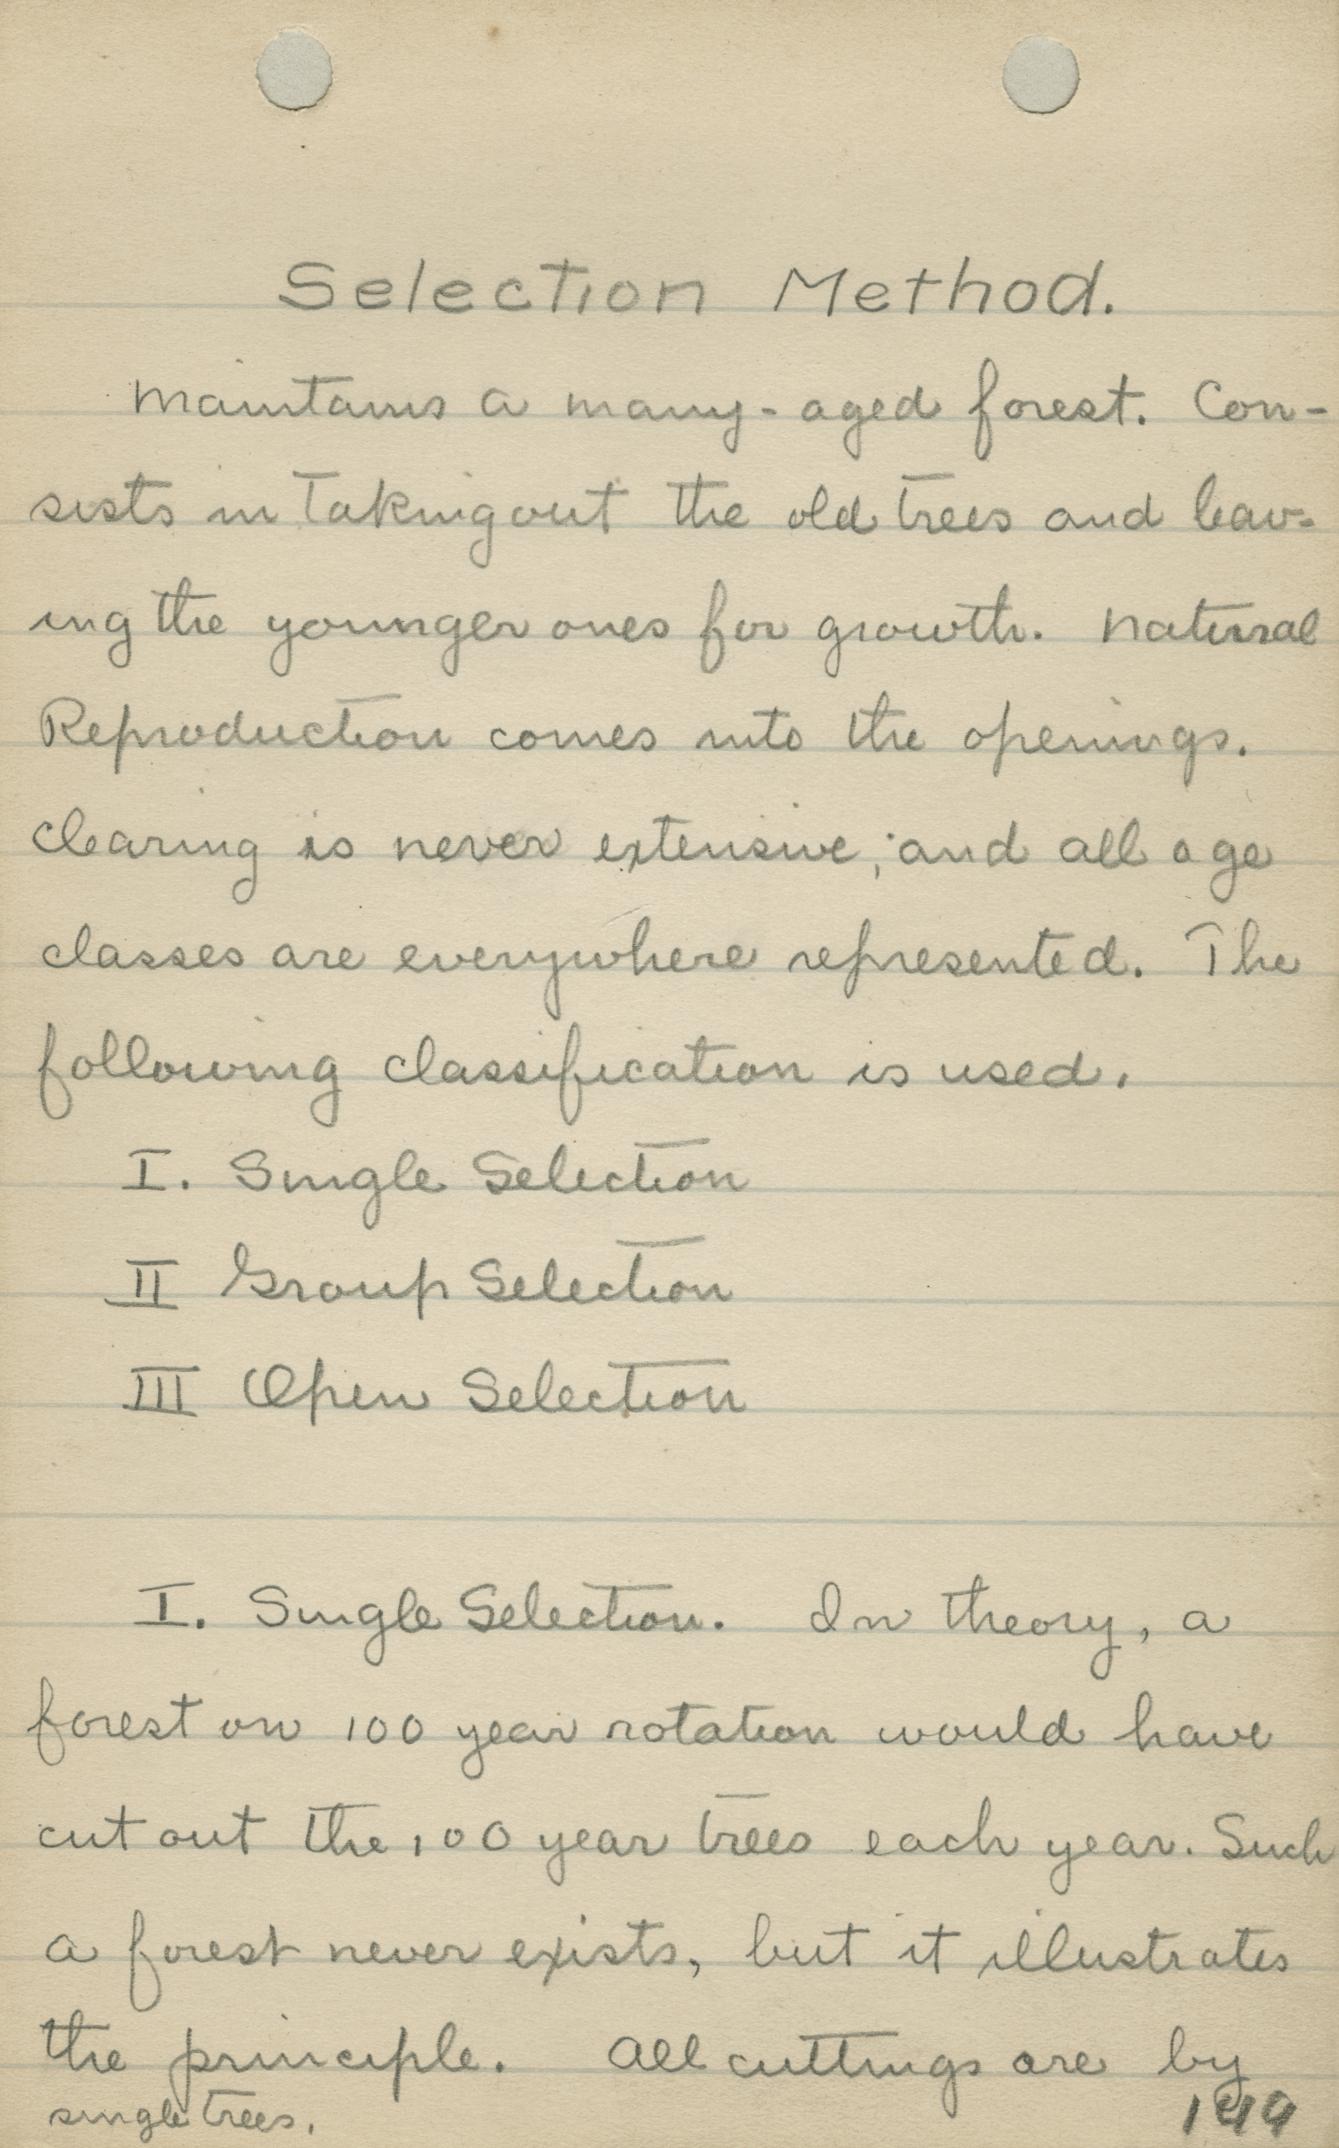 Selection Method.
Maintains a many-aged forest. Con-
sists in Taking out the old trees and leav-
ing the younger ones for growth. Natural
Reproduction comes into the openings.
Clearing is never extensive, and all age
classes are everywhere represented. The
following classification is used.
I. Single Selection
II Group Selection
III Open Selection
I. Single Selection. In theory, a
forest on 100 year rotation would have
cut out the 100 year trees each year. Such
a forest never exists, but it illustrates
the principle. All cuttings are by
single trees.
149